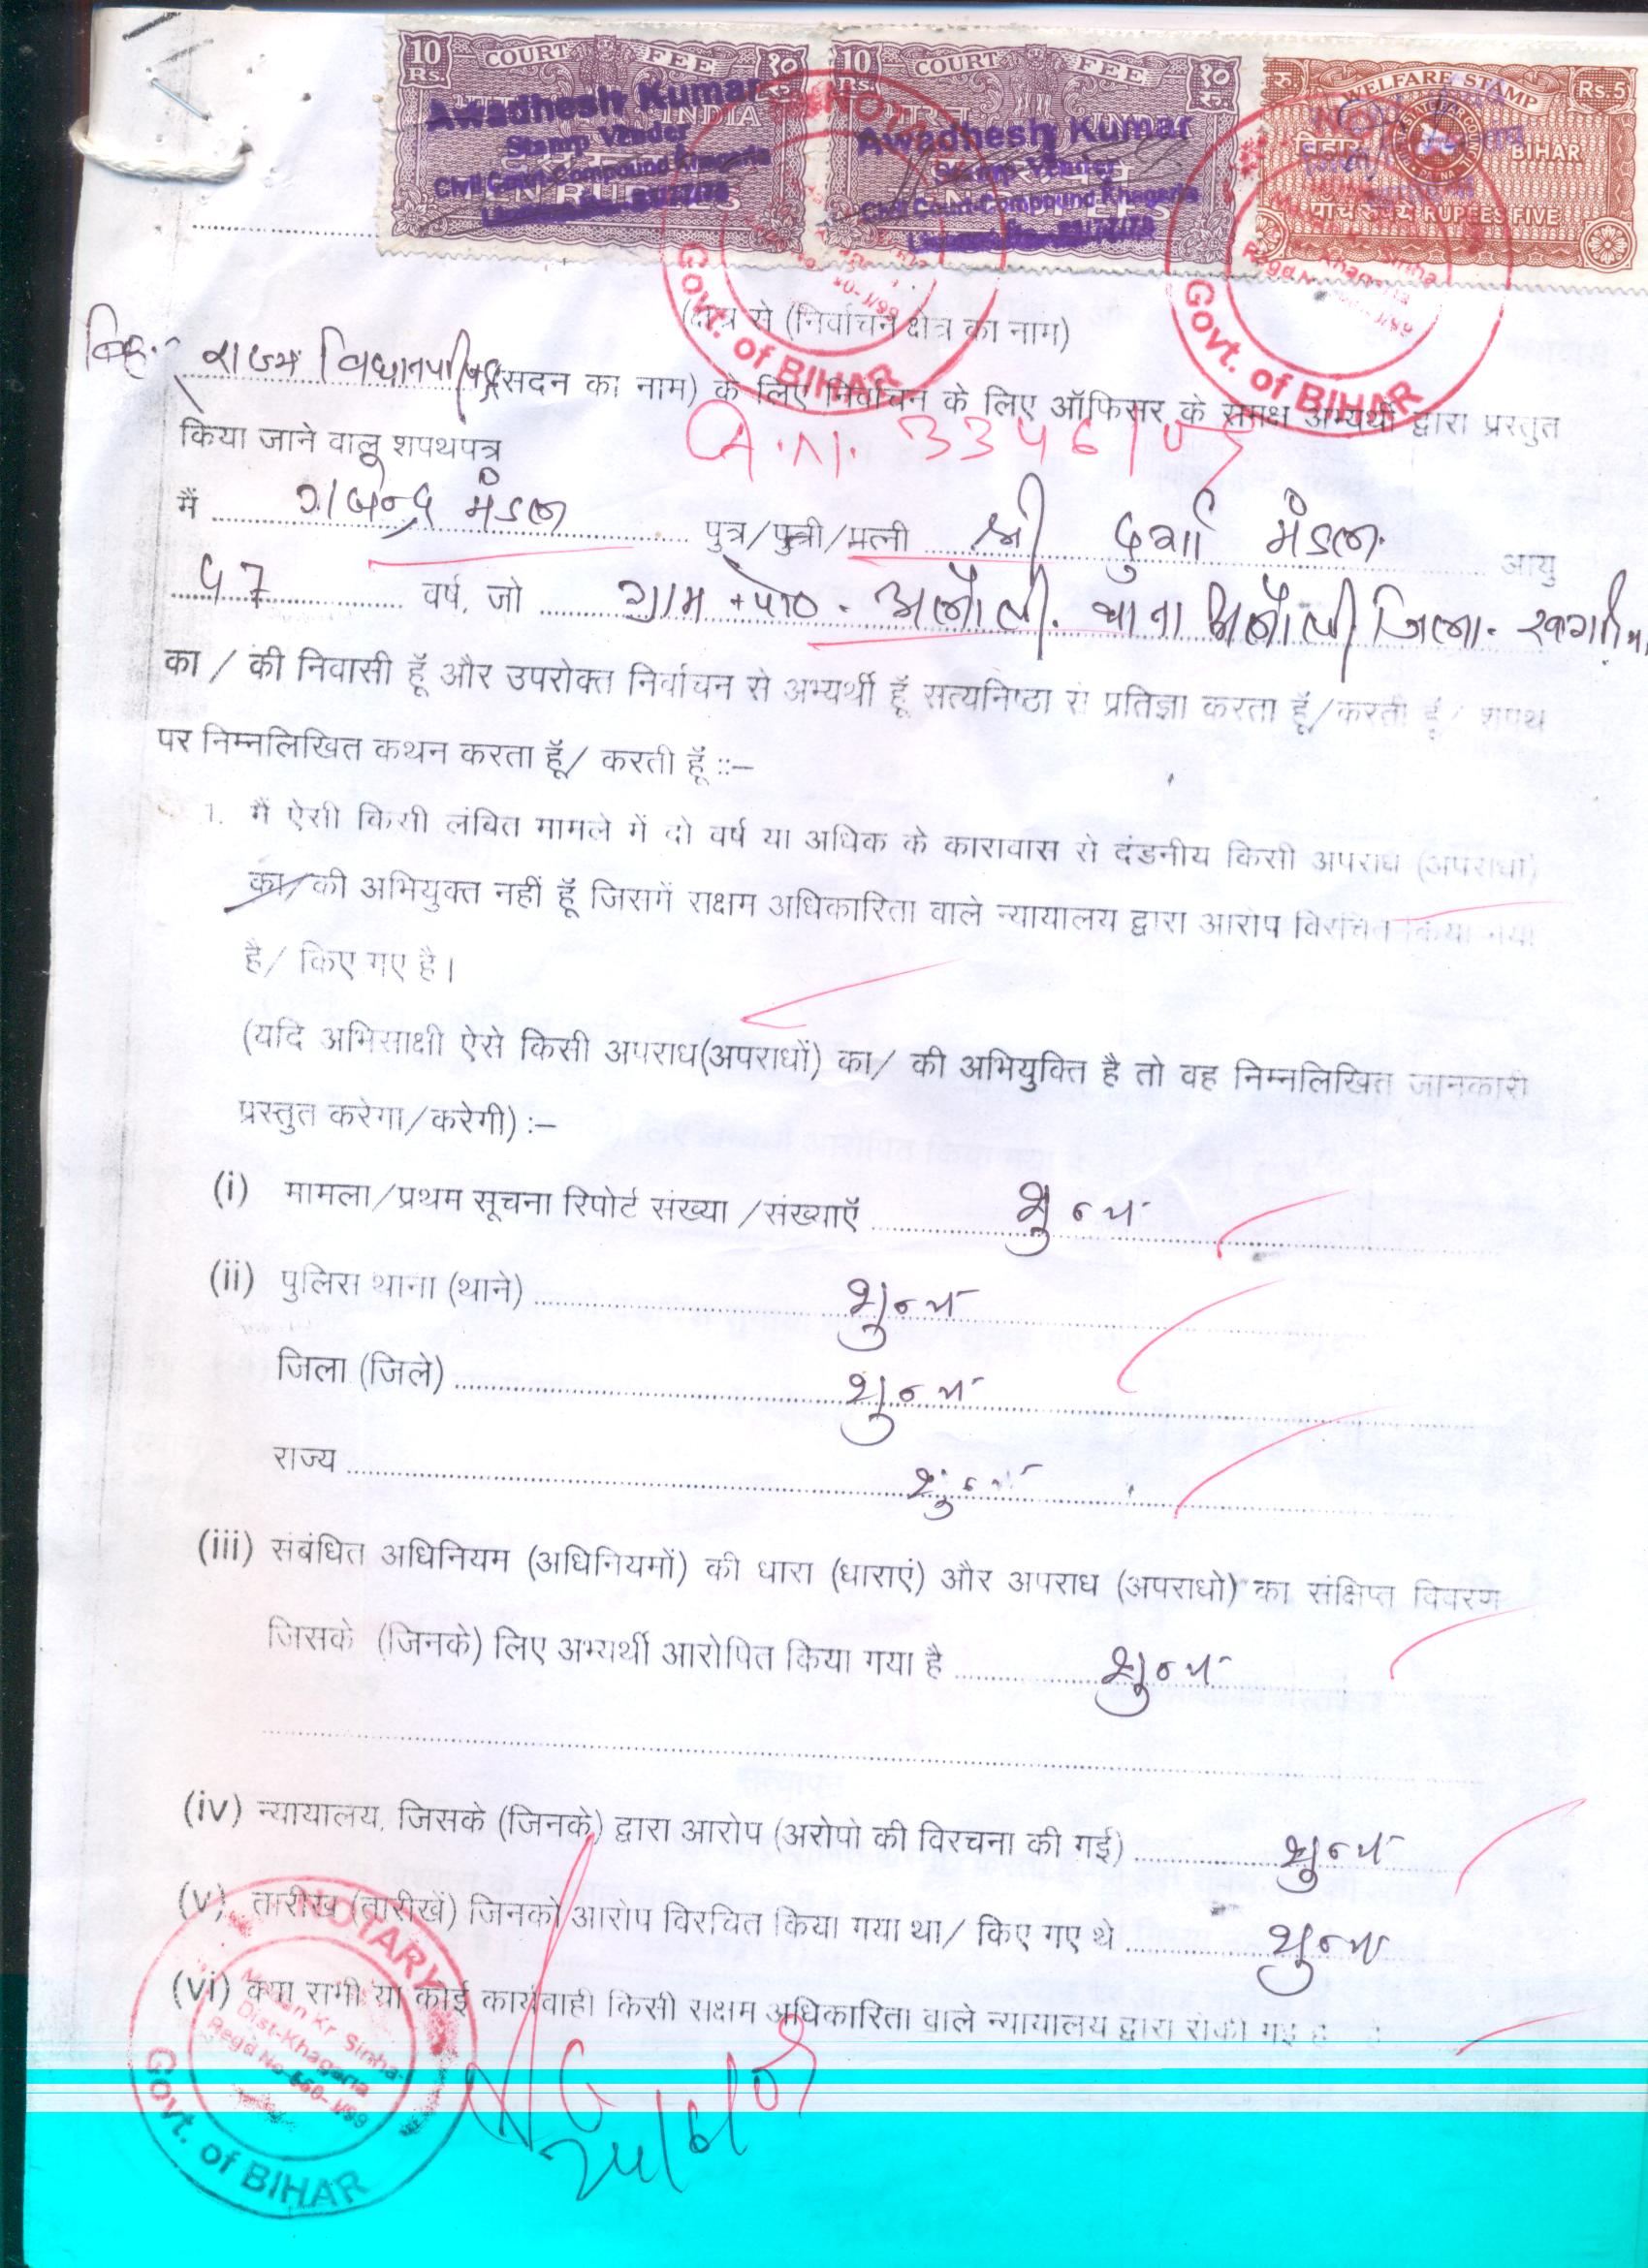 10 Rs. COURT FEE १० रु. 10 Rs. COURT FEE १० रु. WELFARE STAMP Rs. 5
INDIA भारत INDIA बिहार BIHAR
Awadhesh Kumar Awadhesh Kumar
Stamp Vender Stamp Vender
Civil Court Compound Khagaria Civil Court Compound Khagaria
पांच रुपये RUPEES FIVE
Govt. of BIHAR Govt. of BIHAR
(क्षेत्र से (निर्वाचन क्षेत्र का नाम)
राज्य विधानपरिषद (सदन का नाम) के लिए निर्वाचन के लिए ऑफिसर के समक्ष अभ्यर्थी द्वारा प्रस्तुत
किया जाने वालू शपथपत्र
मैं गजेन्द्र मंडल पुत्र/पुत्री/पत्नी श्री दुर्गा मंडल आयु
47 वर्ष, जो ग्राम + पो० - अलौली. थाना अलौली जिला-
का / की निवासी हूँ और उपरोक्त निर्वाचन से अभ्यर्थी हूँ सत्यनिष्ठा से प्रतिज्ञा करता हूँ/करती हूँ/ शपथ
पर निम्नलिखित कथन करता हूँ/ करती हूँ ::–
1. मैं ऐसी किसी लंबित मामले में दो वर्ष या अधिक के कारावास से दंडनीय किसी अपराध (अपराधों)
का/की अभियुक्त नहीं हूँ जिसमें सक्षम अधिकारिता वाले न्यायालय द्वारा आरोप विरचित किया गया
है/ किए गए है।
(यदि अभिसाक्षी ऐसे किसी अपराध(अपराधों) का/ की अभियुक्ति है तो वह निम्नलिखित जानकारी
प्रस्तुत करेगा/करेगी) :–
(i) मामला/प्रथम सूचना रिपोर्ट संख्या /संख्याएँ शुन्य
(ii) पुलिस थाना (थाने) शुन्य
जिला (जिले) शुन्य
राज्य शुन्य
(iii) संबंधित अधिनियम (अधिनियमों) की धारा (धाराएं) और अपराध (अपराधो) का संक्षिप्त विवरण
जिसके (जिनके) लिए अभ्यर्थी आरोपित किया गया है शुन्य
(iv) न्यायालय, जिसके (जिनके) द्वारा आरोप (अरोपो की विरचना की गई) शुन्य
(v) तारीख (तारीखें) जिनको आरोप विरचित किया गया था/ किए गए थे शुन्य
(vi) क्या सभी या कोई कार्यवाही किसी सक्षम अधिकारिता वाले न्यायालय द्वारा रोकी गई
NOTARY
Kr. Sinha
Dist-Khagaria
Govt. of BIHAR